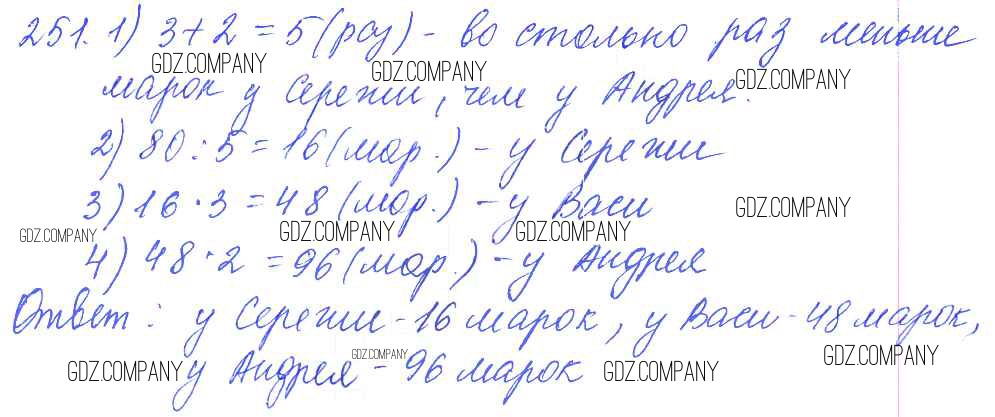 251. 1) 3+2=5(раз) - во столько раз меньше
GDZ.COMPANY GDZ.COMPANY GDZ.COMPANY
марок у Сережи, чем у Андрея.
2) 80:5=16(мар.) - у Сережи
3) 16·3=48(мар.) - у Васи
GDZ.COMPANY
GDZ.COMPANY GDZ.COMPANY GDZ.COMPANY
4) 48·2=96(мар.) - у Андрея
Ответ: у Сережи - 16 марок, у Васи - 48 марок,
GDZ.COMPANY GDZ.COMPANY
у Андрея - 96 марок
GDZ.COMPANY GDZ.COMPANY